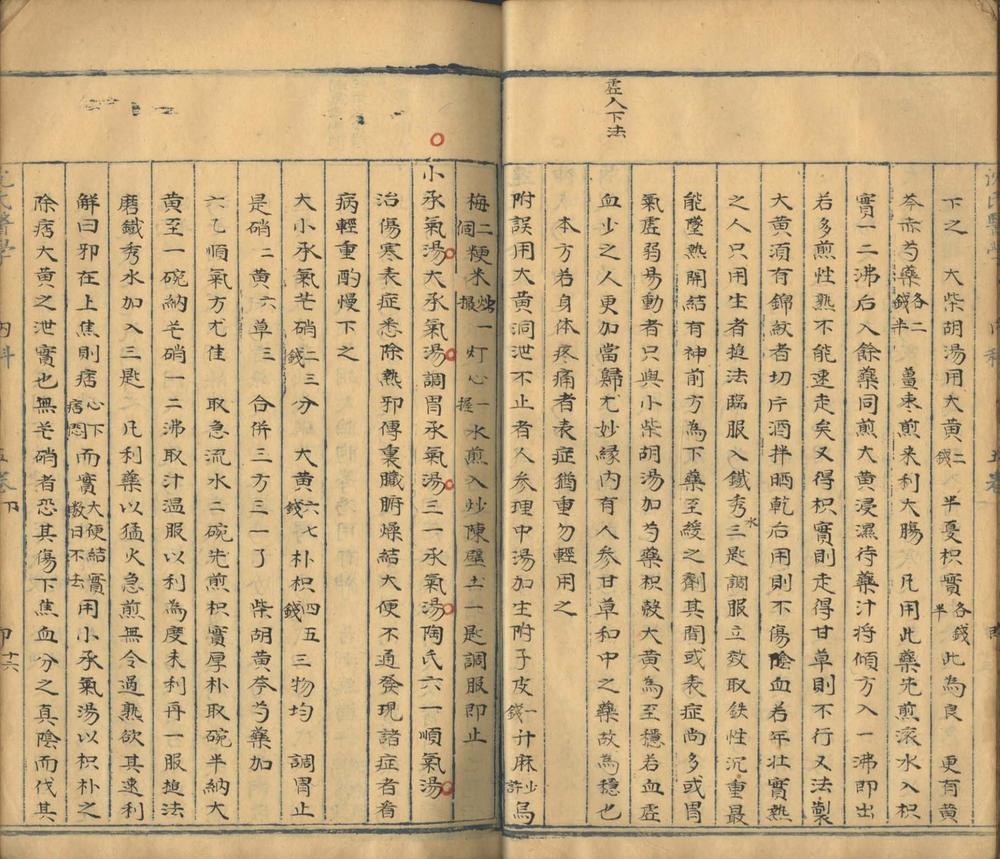 虛人下法
下之 大柴胡湯用大黃二錢半夏枳實各錢半此為良 更有黃
芩赤芍藥各二錢半 薑枣煎来利大腸 凡用此藥先煎滚水入枳
實一二沸后入餘藥同煎大黃浸濕待藥汁將傾方入一沸即出
若多煎性熟不能速走矣又得枳實則走得甘草則不行又法製
大黃湏有錦紋者切片酒拌晒乾后用則不傷陰血若年壯實熱
之人只用生者搥法臨服入鐵秀水三匙調服立效取鉄性沉重最
能墜熱開結有神前方為下藥至緩之劑其間或表症尚多或胃
氣虛弱易動者只與小柴胡湯加芍藥枳殼大黃為至穩若血虛
血少之人更加當歸尤妙緣內有人参甘草和中之藥故為穩也
本方若身体疼痛者表症猶重勿輕用之
附誤用大黃洞泄不止者人参理中湯加生附子皮一錢升麻少許烏
梅二個粳米炒一撮灯心一握水煎入炒陳壁土一匙調服即止
小承氣湯大承氣湯調胃承氣湯三一承氣湯陶氏六一順氣湯
治傷寒表症悉除熱邪傳裏臟腑燥結大便不通發現諸症者看
病輕重酌慢下之
大小承氣芒硝二三分錢 大黃六七錢朴枳四五錢三物均 調胃止
是硝二黃六草三 合併三方三一了 柴胡黃芩芍藥加
六乙順氣方尤佳 取急流水二碗先煎枳實厚朴取碗半納大
黃至一碗納芒硝一二沸取汁温服以利為度未利再一服搥法
磨鐵秀水加入三匙 凡利藥以猛火急煎無令過熟欲其速利
解曰邪在上焦則痞心下痞悶而實大便結實数日不去用小承氣湯以枳朴之
除痞大黃之泄實也無芒硝者恐其傷下焦血分之真陰而伐其
氏醫學 內科